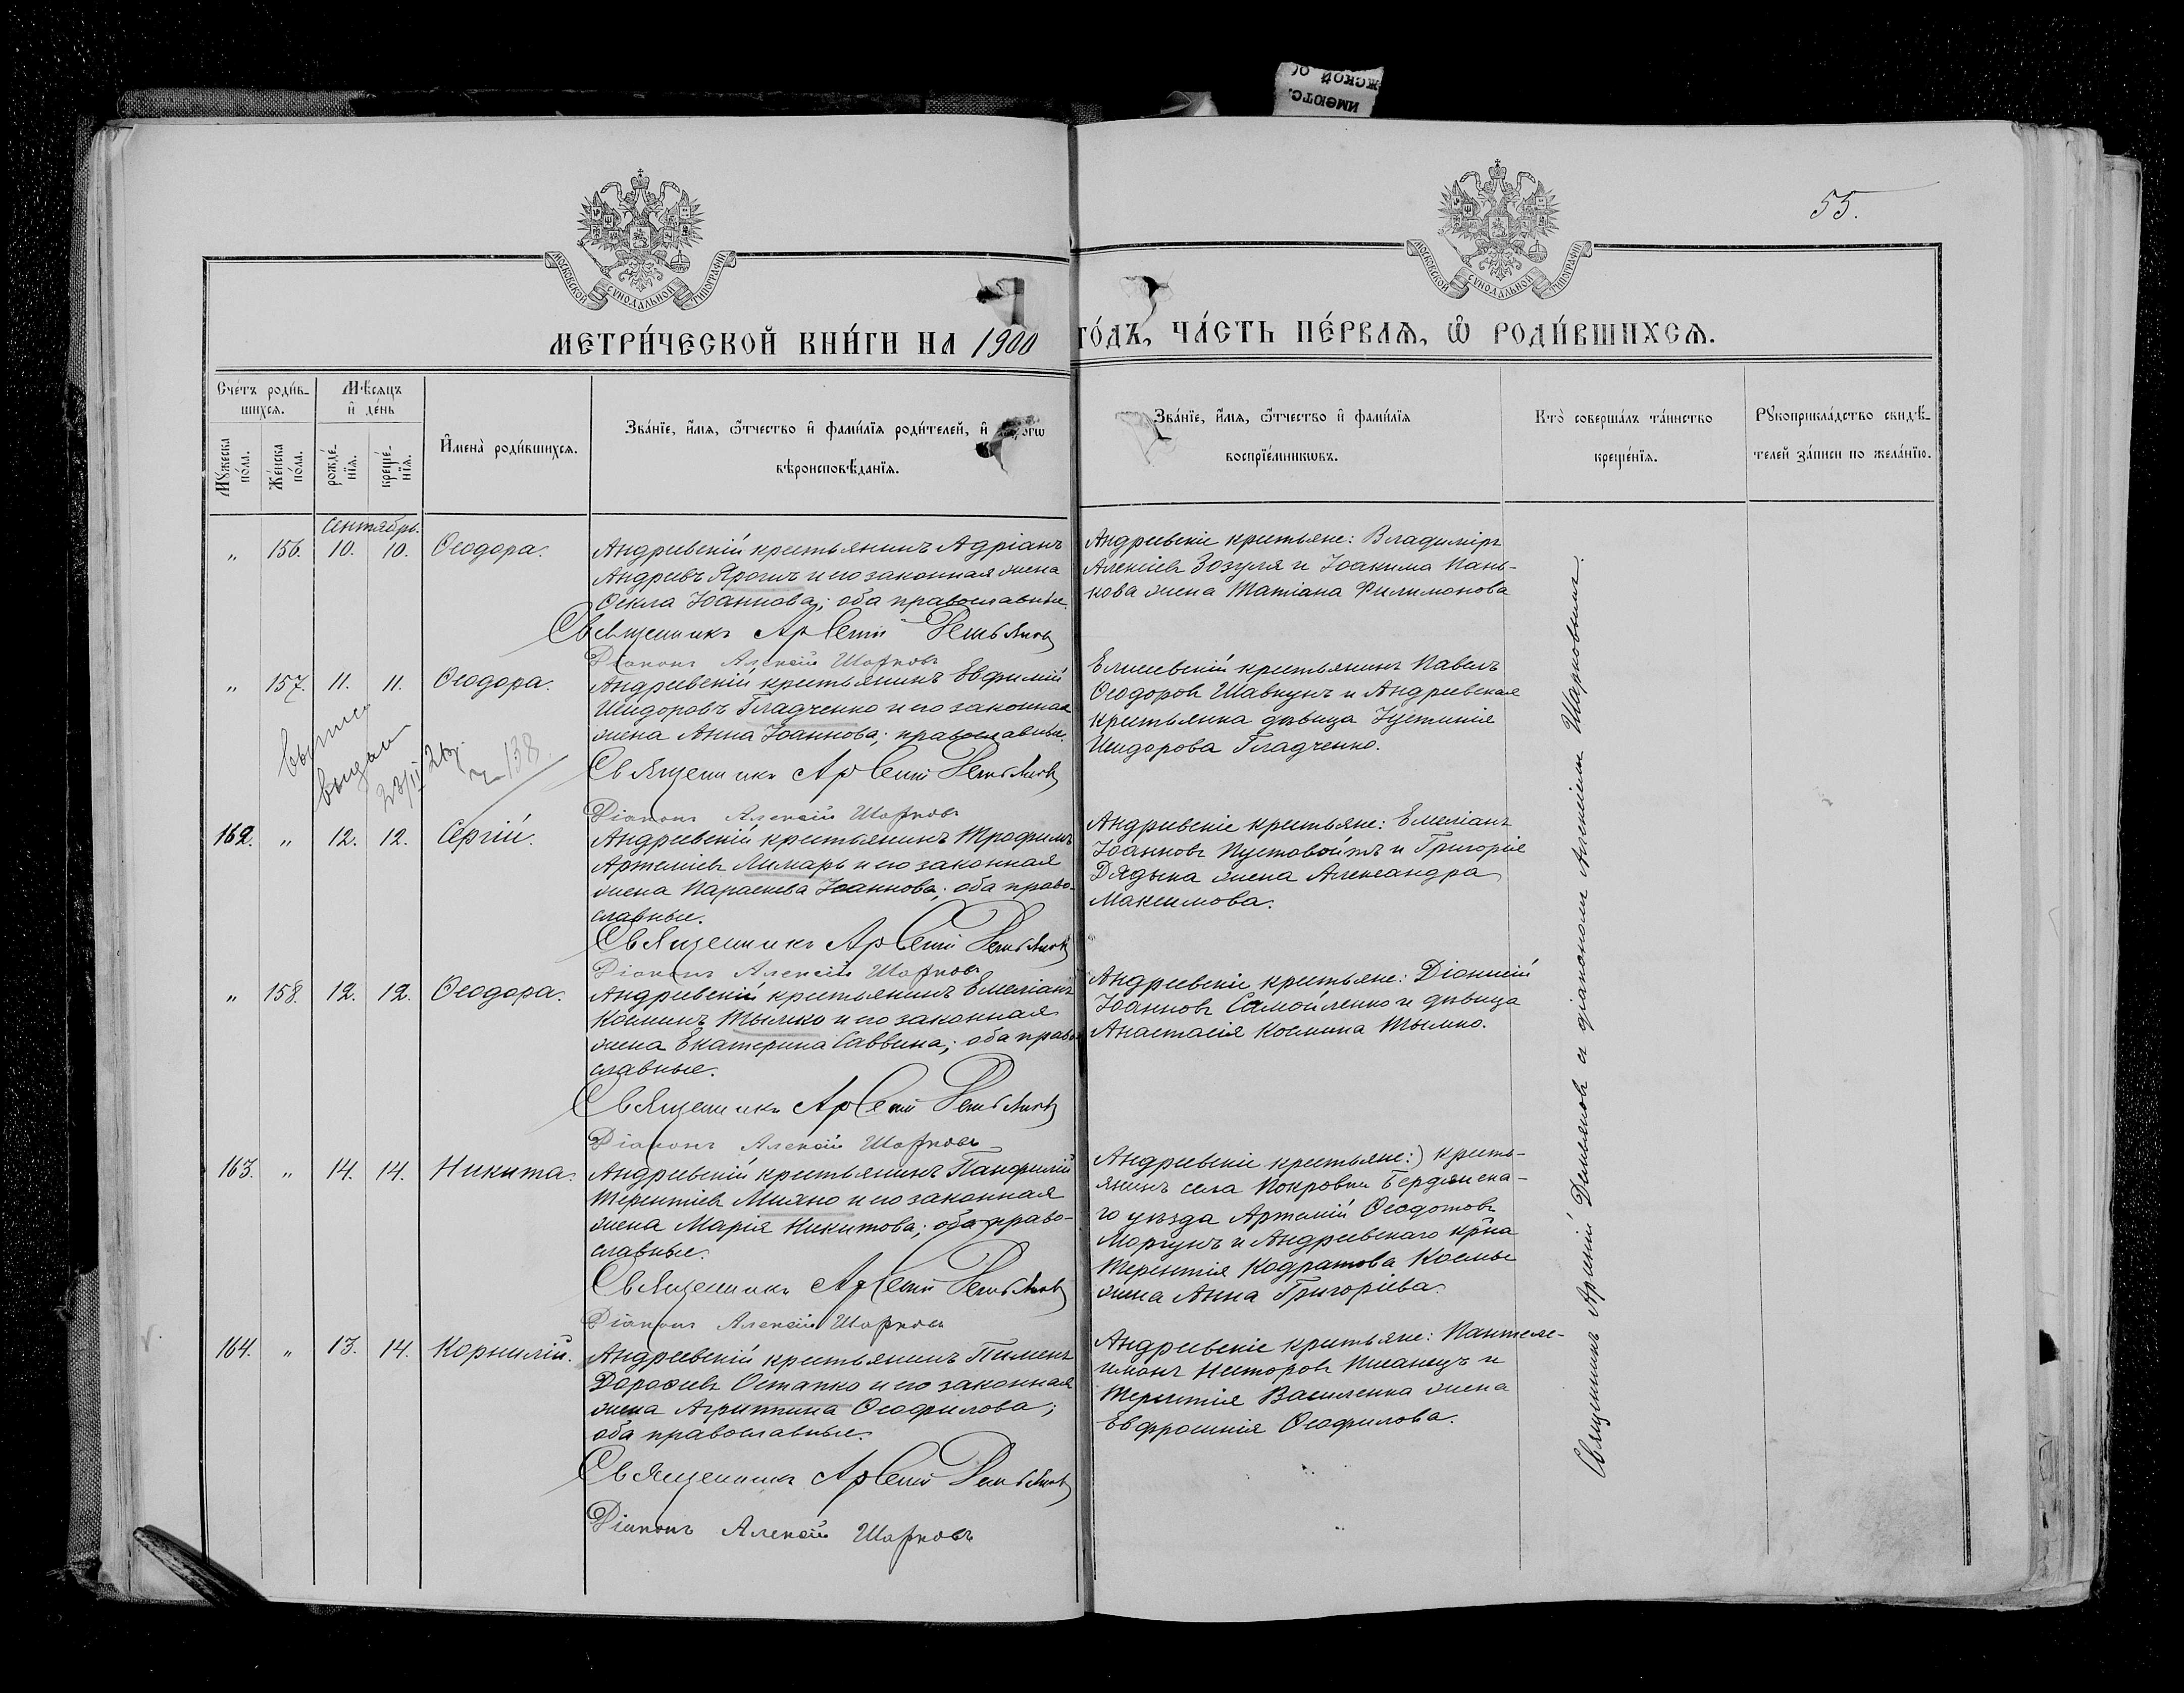 55.
МОСКОВСКОЙ СѴНОДАЛЬНОЙ ТИПОГРАФІИ
МОСКОВСКОЙ СѴНОДАЛЬНОЙ ТИПОГРАФІИ
МЕТРИ́ЧЕСКОЙ КНИ́ГИ НА 1900 ГО́ДЪ, ЧА́СТЬ ПЕ́РВАѦ, Ѡ҆ РОДИ́ВШИХСѦ.
Сче́тъ роди́в-
шихсѧ.
Мѣ́сяцъ
и҆ де́нь
Мꙋ́жеска по́ла.
Же́нска по́ла.
рожде́-
нїѧ.
креще́-
нїѧ.
И҆мена̀ роди́вшихсѧ.
Зва́нїе, и҆́мѧ, ѻ҆́тчество и҆ фами́лїѧ роди́телей, и҆
вѣроисповѣ́данїѧ.
Зва́нїе, и҆́мѧ, ѻ҆́тчество и҆ фами́лїѧ
воспрїе́мникѡвъ.
Кто̀ соверша́лъ та́инство
креще́нїѧ.
Рꙋкоприкла́дство свидѣ́-
телей за́писи по жела́нїю.
Сентябрь.
" 156. 10. 10. Ѳеодора.
Андреевскій крестьянинъ Адріанъ
Андреевъ Ярошъ и его законная жена
Ѳекла Іоаннова; оба православные.
Священникъ Арсеній Демьяновъ
Діаконъ Алексій Шарковъ
Андреевскіе крестьяне: Владиміръ
Алексіевъ Зозуля и Іоакима Пань-
кова жена Татіана Филимонова
" 157. 11. 11. Ѳеодора.
Андреевскій крестьянинъ Евфимій
Исидоровъ Гладченко и его законная
жена Анна Іоаннова; православные.
Священникъ Арсеній Демьяновъ
Діаконъ Алексій Шарковъ
Елисеевскій крестьянинъ Павелъ
Ѳеодоровъ Шавкунъ и Андреевская
крестьянка дѣвица Іустинія
Исидорова Гладченко.
выдан
138
162. " 12. 12. Сергій.
Андреевскій крестьянинъ Трофимъ
Артеміевъ Лимарь и его законная
жена Параскева Іоаннова; оба право-
славные.
Священникъ Арсеній Демьяновъ
Діаконъ Алексій Шарковъ
Андреевскіе крестьяне: Емеліанъ
Іоанновъ Пустовойтъ и Григорія
Дядыка жена Александра
Максимова.
" 158. 12. 12. Ѳеодора.
Андреевскій крестьянинъ Емеліанъ
Косминъ Тымко и его законная
жена Екатерина Саввина; оба право-
славные.
Священникъ Арсеній Демьяновъ
Діаконъ Алексій Шарковъ
Андреевскіе крестьяне: Діонисій
Іоанновъ Самойленко и дѣвица
Анастасія Космина Тымко.
163. " 14. 14. Никита.
Андреевскій крестьянинъ Панфилій
Терентіевъ Мияно и его законная
жена Марія Никитова; оба право-
славные.
Священникъ Арсеній Демьяновъ
Діаконъ Алексій Шарковъ
Андреевскіе крестьяне:) кресть-
янинъ села Покровки Бердянска-
го уѣзда Артемій Ѳеодотовъ
Моргунъ и Андреевскаго кр-на
Терентія Кодратова Космы
жена Анна Григоріева.
164. " 13. 14. Корнилій.
Андреевскій крестьянинъ Пименъ
Дороѳеевъ Остапко и его законная
жена Агриппина Ѳеофилова;
оба православные.
Священникъ Арсеній Демьяновъ
Діаконъ Алексій Шарковъ
Андреевскіе крестьяне: Пантеле-
имонъ Несторовъ Писанецъ и
Терентія Василенка жена
Евфросинія Ѳеофилова.
Священникъ Арсеній Демьяновъ съ діакономъ Алексіемъ Шарковымъ.